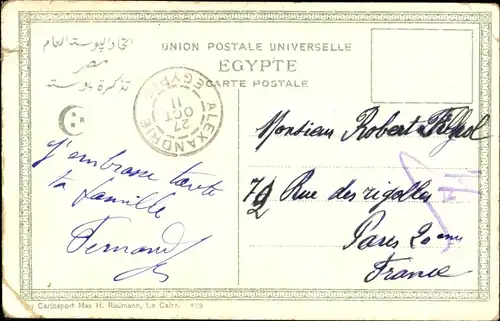 اتحاد البوستة العام
مصر
تذكرة بوستة
UNION POSTALE UNIVERSELLE
EGYPTE
CARTE POSTALE
ALEXANDRIE
EGYPTE
27
OCT
11
Monsieur Robert
72 Rue des rigolles
Paris 20ème
France
J'embrasse toute
ta famille
Fernand
Cartosport Max H. Rudmann, Le Caire. 273